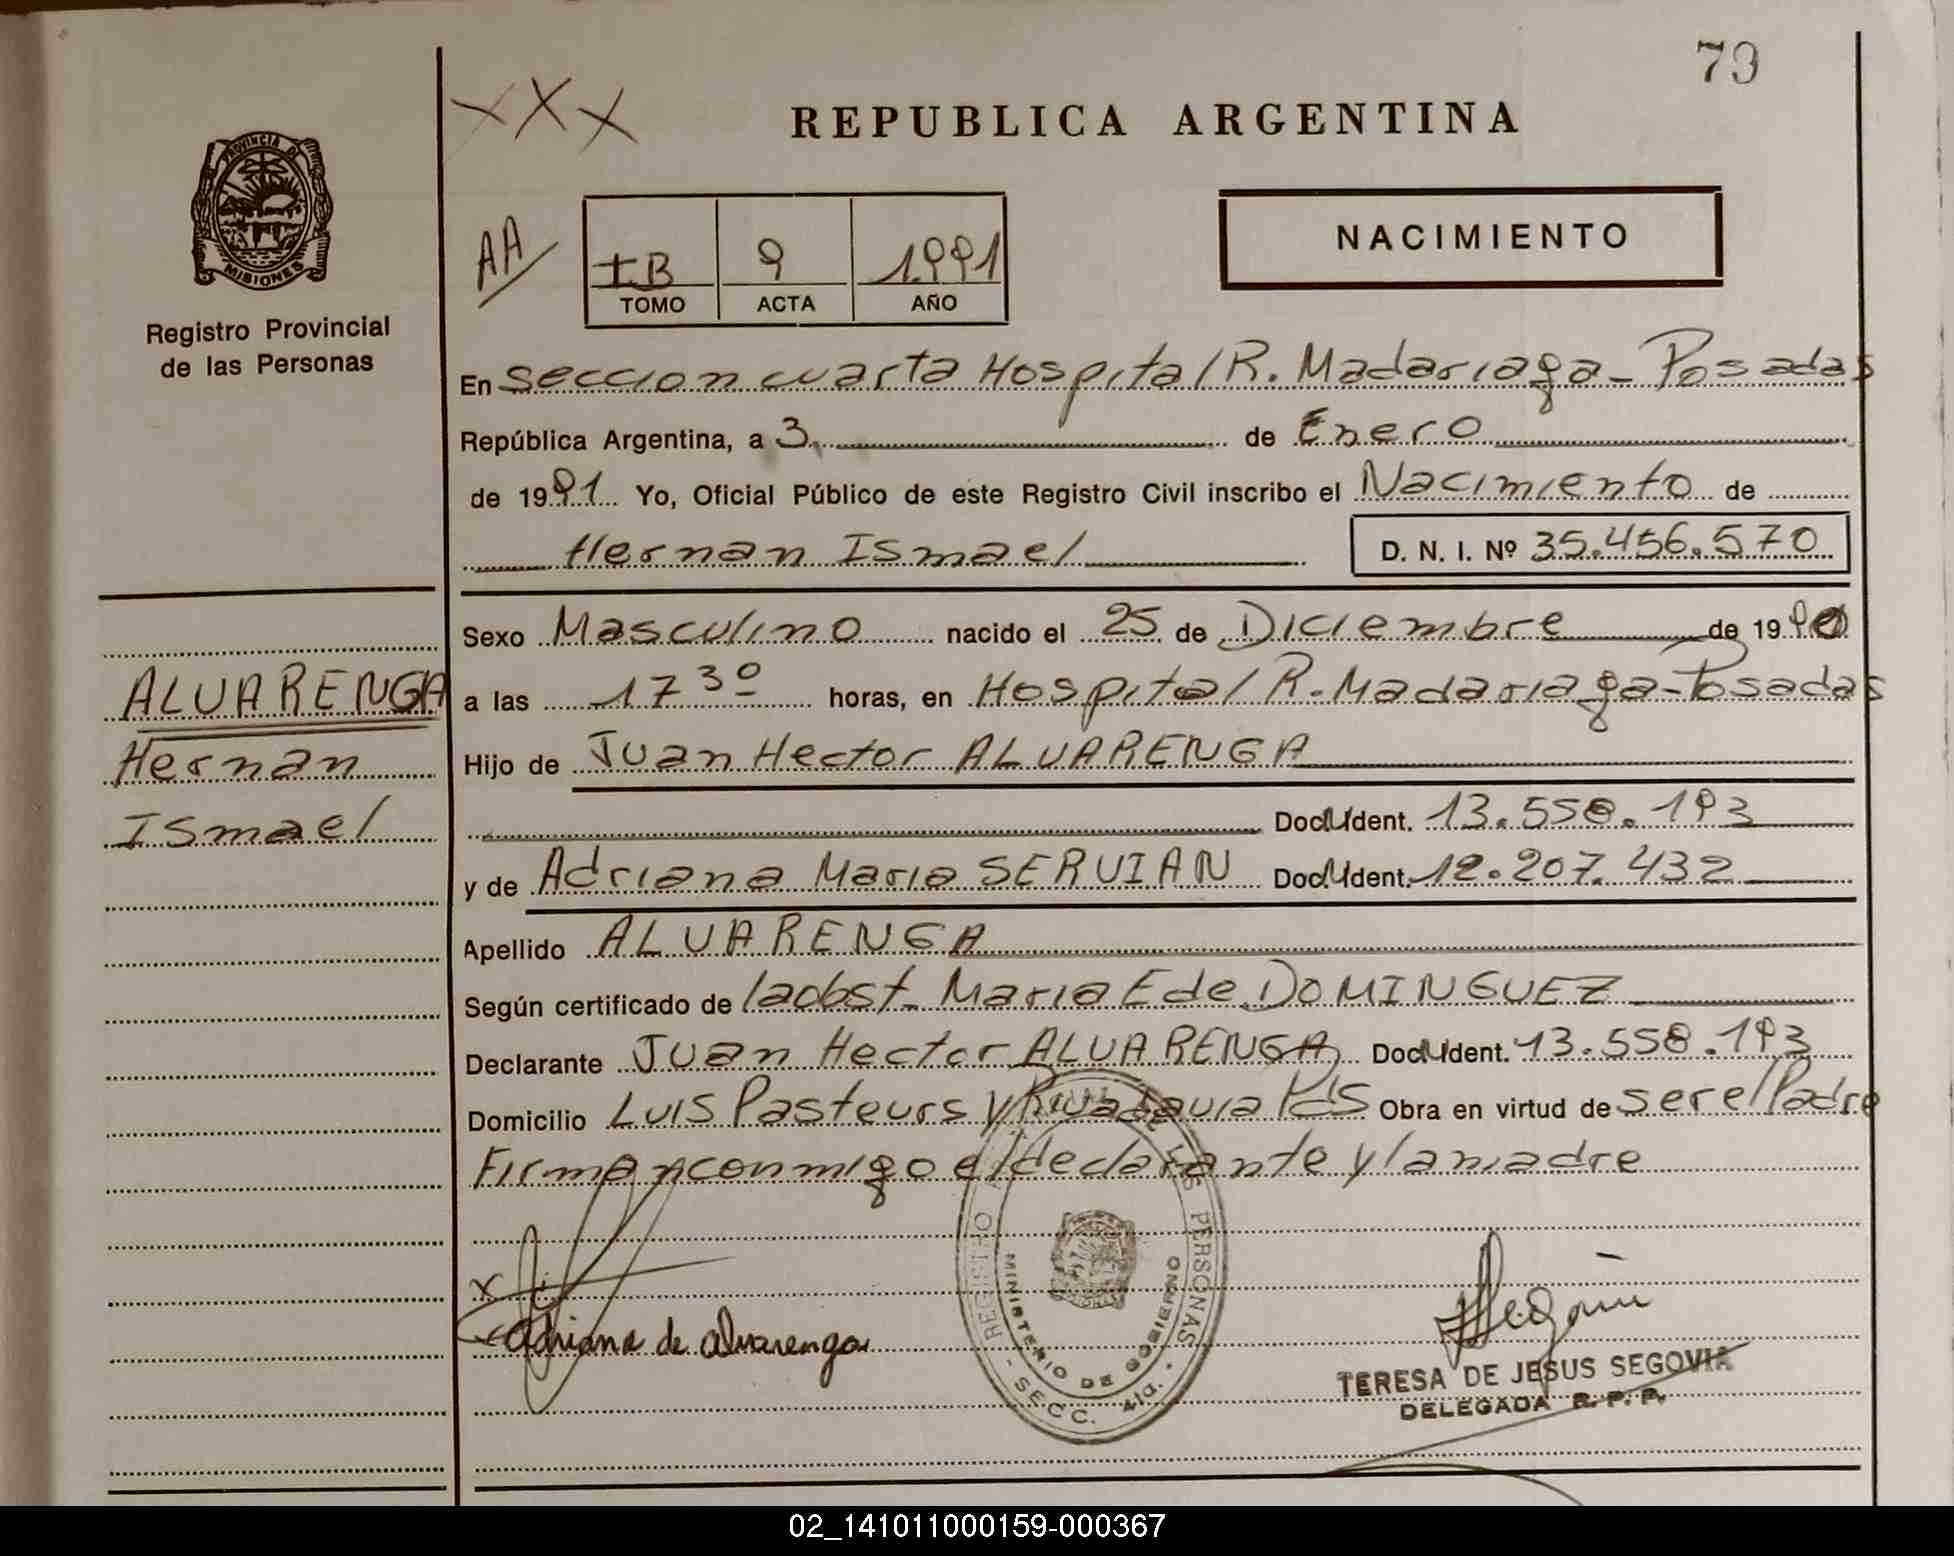 79
XXX
REPUBLICA ARGENTINA
PROVINCIA DE
MISIONES
Registro Provincial
de las Personas
AA
I.B 9 1.991
TOMO ACTA AÑO
NACIMIENTO
En Seccion cuarta Hospital R. Madariaga - Posadas
República Argentina, a 3 de Enero
de 1991 Yo, Oficial Público de este Registro Civil inscribo el Nacimiento de
Hernan Ismael D. N. I. Nº 35.456.570
Sexo Masculino nacido el 25 de Diciembre de 1990
a las 17 30 horas, en Hospital R. Madariaga - Posadas
Hijo de Juan Hector ALVARENGA
Doc. Ident. 13.558.193
y de Adriana Maria SERVIAN Doc. Ident. 12.207.432
Apellido ALVARENGA
Según certificado de la obst. Maria E de DOMINGUEZ
Declarante Juan Hector ALVARENGA Doc. Ident. 13.558.193
Domicilio Luis Pasteurs y Rivadavia Pds Obra en virtud de ser el Padre
Firman conmigo el declarante y la madre
ALVARENGA
Hernan
Ismael
x
Adriana de Alvarenga
REGISTRO DE LAS PERSONAS
MINISTERIO DE GOBIERNO
- SECC. 4ta. -
Segovia
TERESA DE JESUS SEGOVIA
DELEGADA R. P. P.
02_141011000159-000367